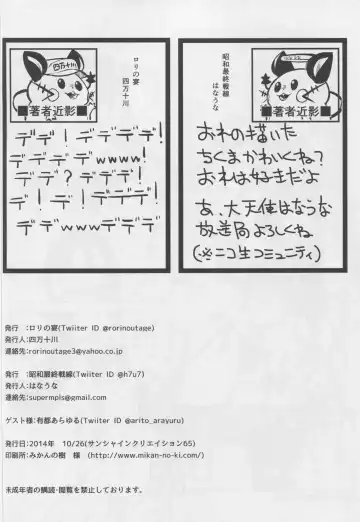 ロリの宴
四万十川
四万十川
■著者近影■
デデ！デデデデ！
デデデデwwww！
デデ？デデデデ！
デ！デ！デデデ！
デデwwwデデデ
昭和最終戦線
はなうな
■著者近影■
おれの描いた
ちくまかわいくね？
おれは好きだよ
あ、大天使はなうな
放送局よろしくね
(※ニコ生コミュニティ)
発行　:ロリの宴(Twiiter ID @rorinoutage)
発行人:四万十川
連絡先:rorinoutage3@yahoo.co.jp
発行　:昭和最終戦線(Twiiter ID @h7u7)
発行人:はなうな
連絡先:supermpls@gmail.com
ゲスト様:有都あらゆる(Twiiter ID @arito_arayuru)
発行日:2014年　10/26(サンシャインクリエイション65)
印刷所:みかんの樹　様　(http://www.mikan-no-ki.com/)
未成年者の購読・閲覧を禁止しております。